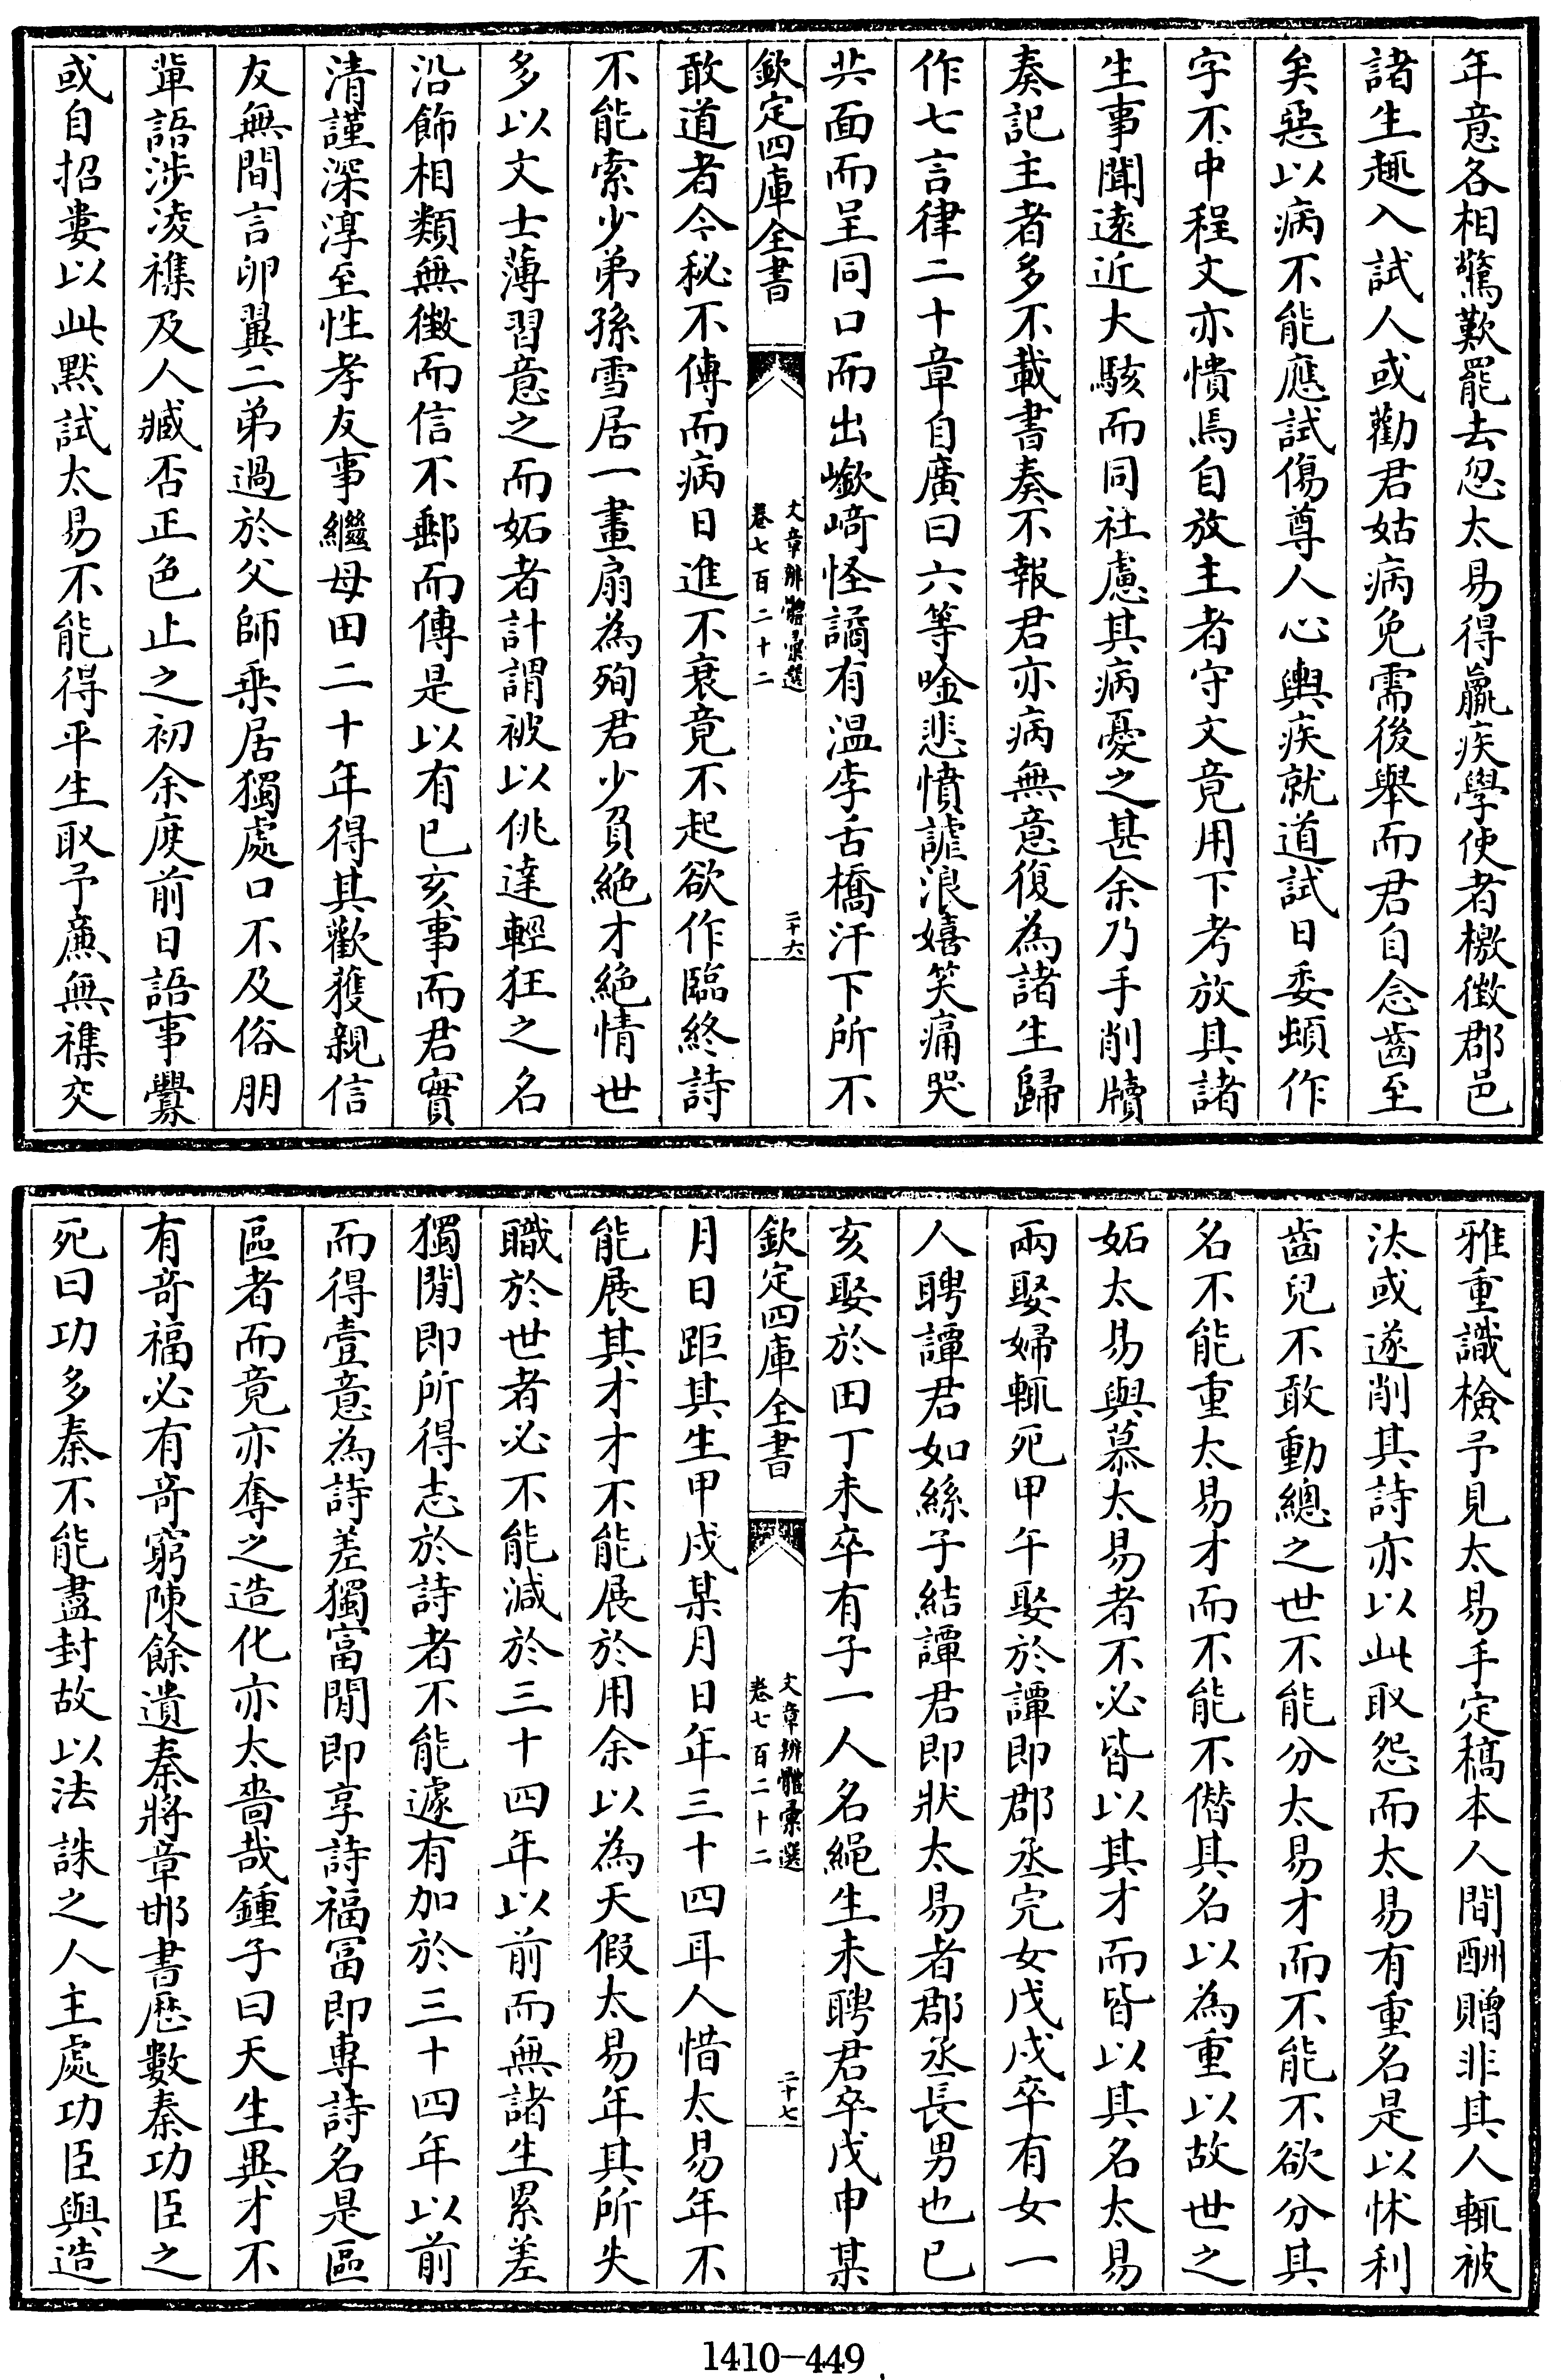 年意各相驚歎罷去忽太易得羸疾學使者檄徴郡邑
諸生趣入試人或勸君姑病免需後舉而君自念齒至
矣惡以病不能應試傷尊人心輿疾就道試日委頓作
字不中程文亦憒焉自放主者守文竟用下考放其諸
生事聞遠近大駭而同社慮其病憂之甚余乃手削牘
奏記主者多不載書奏不報君亦病無意復為諸生歸
作七言律二十章自廣曰六等唫悲憤謔浪嬉笑痛哭
共面而呈同口而出嶔﨑怪譎有温李舌橋汗下所不
欽定四庫全書
文章辨體彚選
卷七百二十二
二十六
敢道者今秘不傳而病日進不衰竟不起欲作臨終詩
不能索少弟孫雪居一畫扇為殉君少負絶才絶情世
多以文士薄習意之而妬者計謂被以佻達輕狂之名
沿飾相類無徴而信不郵而傳是以有已亥事而君實
清謹深淳至性孝友事繼母田二十年得其歡獲親信
友無間言卵翼二弟過於父師乗居獨處口不及俗朋
軰語涉凌襍及人臧否正色止之初余庋前日語事釁
或自招婁以此黙試太易不能得平生取予亷無襍交
雅重識檢予見太易手定稿本人間酬贈非其人輒被
汰或遂削其詩亦以此取怨而太易有重名是以怵利
齒兒不敢動總之世不能分太易才而不能不欲分其
名不能重太易才而不能不僭其名以為重以故世之
妬太易與慕太易者不必皆以其才而皆以其名太易
兩娶婦輒死甲午娶於譚即郡丞完女戊戌卒有女一
人聘譚君如絲子結譚君即狀太易者郡丞長男也已
亥娶於田丁未卒有子一人名繩生未聘君卒戊申某
欽定四庫全書
文章辨體彚選
卷七百二十二
二十七
月日距其生甲戌某月日年三十四耳人惜太易年不
能展其才才不能展於用余以為天假太易年其所失
職於世者必不能減於三十四年以前而無諸生累差
獨閒即所得志於詩者不能遽有加於三十四年以前
而得壹意為詩差獨富閒即享詩福冨即專詩名是區
區者而竟亦奪之造化亦太嗇哉鍾子曰天生異才不
有奇福必有奇窮陳餘遺秦將章邯書歴數秦功臣之
死曰功多秦不能盡封故以法誅之人主處功臣與造
1410-449